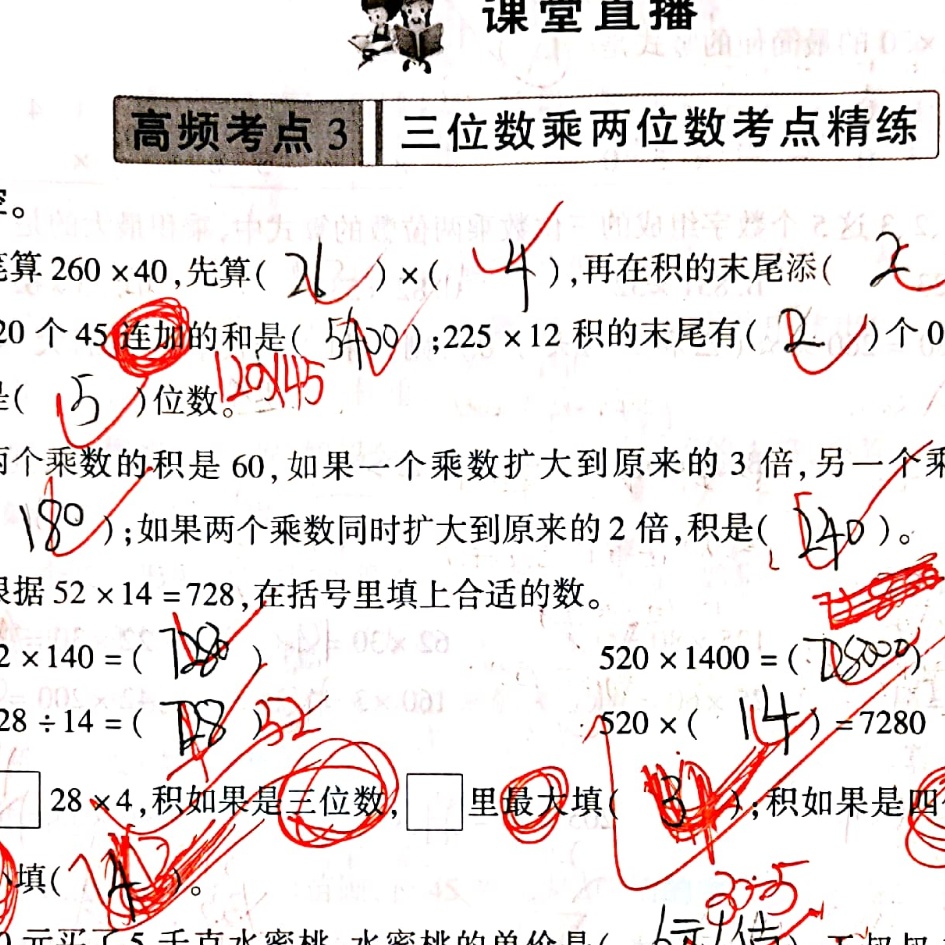 课堂直播
高频考点3 三位数乘两位数考点精练
空。
笔算260×40,先算( 26 )×( 4 ),再在积的末尾添( 2
20个45连加的和是( 5400 );225×12积的末尾有( 2 )个0
120×45
是( 5 )位数。
两个乘数的积是60,如果一个乘数扩大到原来的3倍,另一个乘
180 );如果两个乘数同时扩大到原来的2倍,积是( 240 )。
根据52×14=728,在括号里填上合适的数。
2×140=( 7280 ) 520×1400=( 728000 )
28÷14=( 728 ) 52 520×( 14 )=7280
□28×4,积如果是三位数,□里最大填( 3 );积如果是四
填( )。
元买了5千克水蜜桃,水蜜桃的单价是(